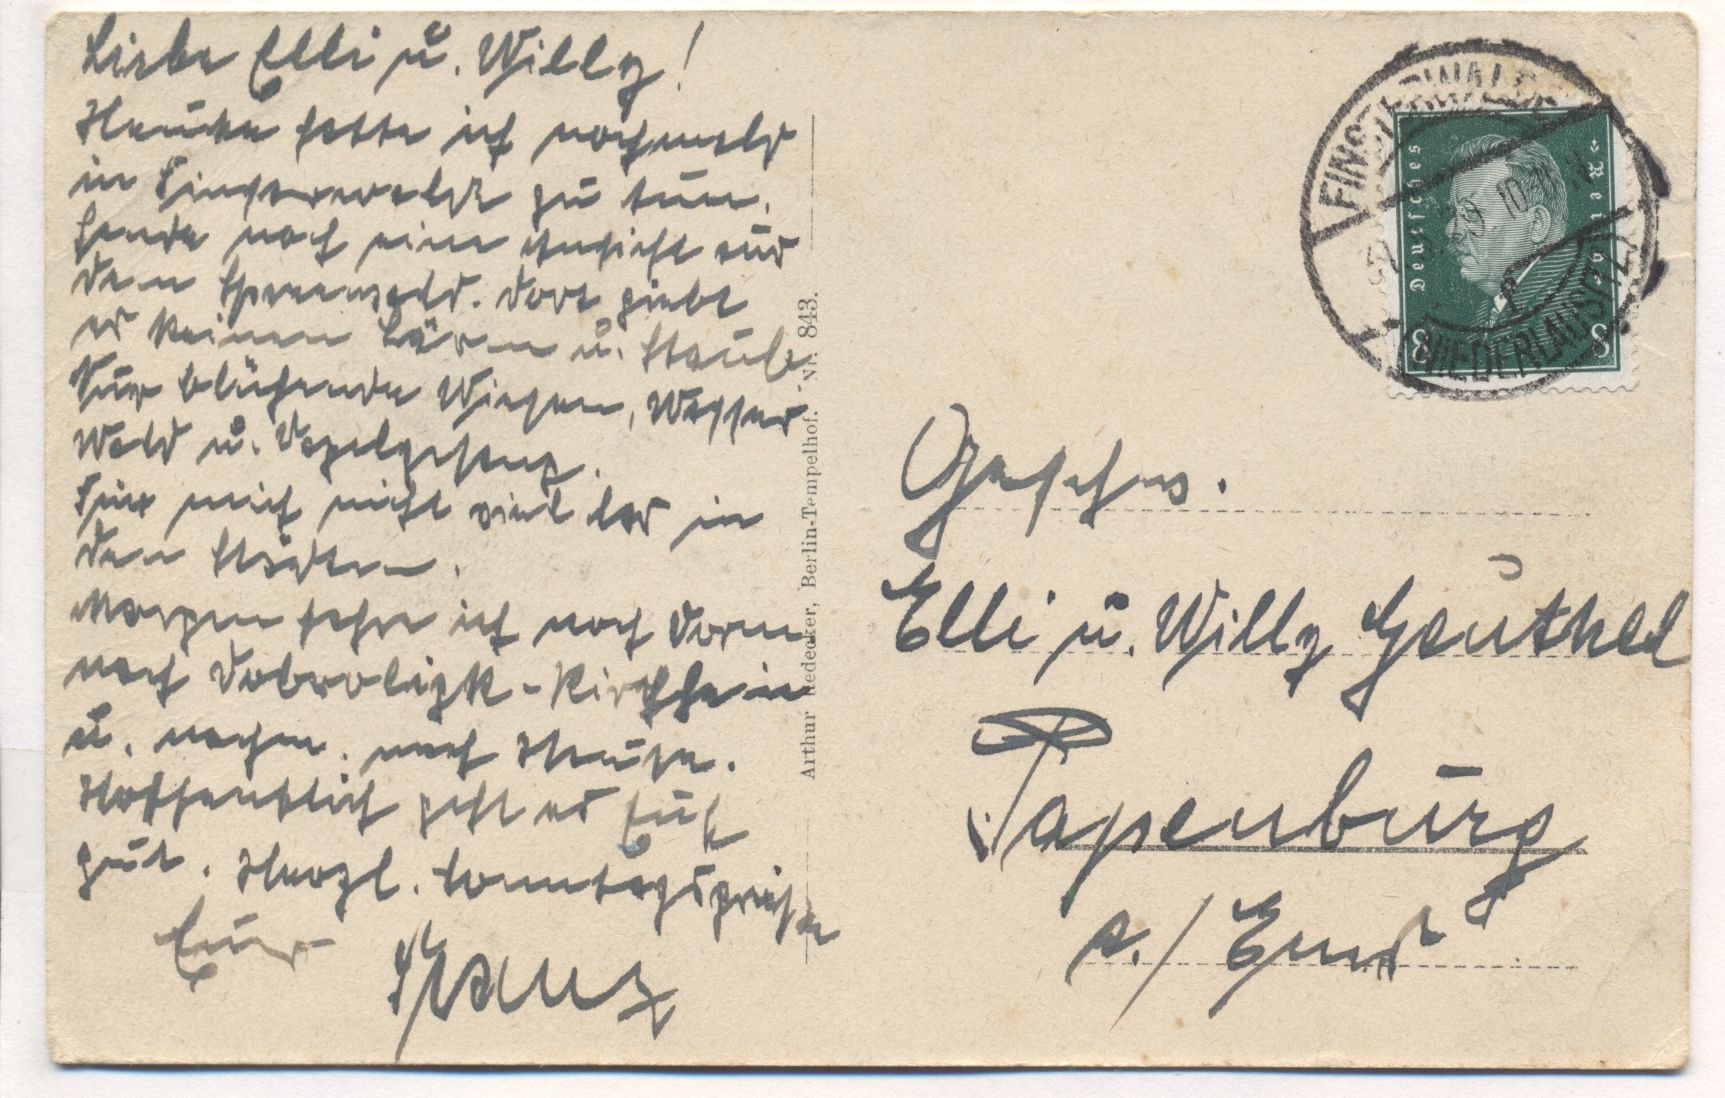 Liebe Elli u. Willy!
Heute hatte ich nochmals
in Finsterwalde zu tun.
Sende noch eine Ansicht aus
dem Spreewald. Dort giebt
es keinen Lärm u. Staub
Nur blühende Wiesen, Wasser
Wald u. Vogelgesang.
Für mich nicht viel los in
den Städten.
Morgen fahre ich noch
nach Dobrilugk-Kirchhain
u. nachm. nach Hause.
Hoffentlich geht es Euch
gut. Herzl. Sonntagsgrüße
Euer
Franz
Arthur Redecker, Berlin-Tempelhof. Nr. 843.
FINSTERWALDE
(NIEDERLAUSITZ)
Deutsches Reich
8 8
Geschw.
Elli u. Willy Geuthel
Papenburg
a./Ems